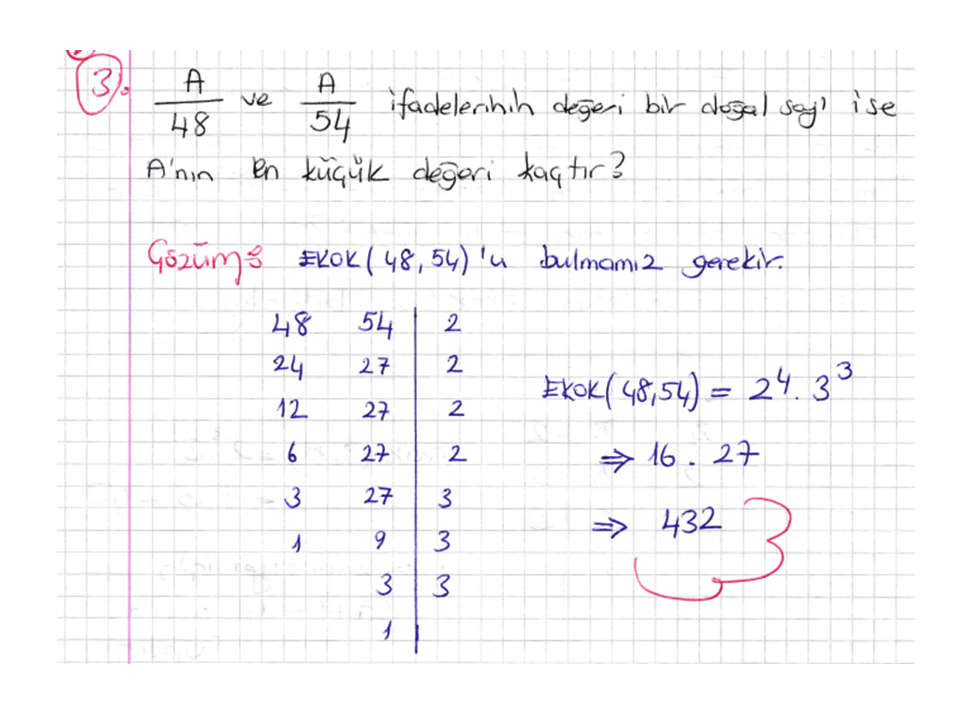 3. A/48 ve A/54 ifadelerinin değeri bir doğal sayı ise
A'nın en küçük değeri kaçtır?
Çözüm: EKOK(48,54)'u bulmamız gerekir.
48 54 | 2
24 27 | 2
12 27 | 2
6 27 | 2
3 27 | 3
1 9 | 3
3 | 3
1 |
EKOK(48,54) = 2⁴.3³
⇒ 16 . 27
⇒ 432